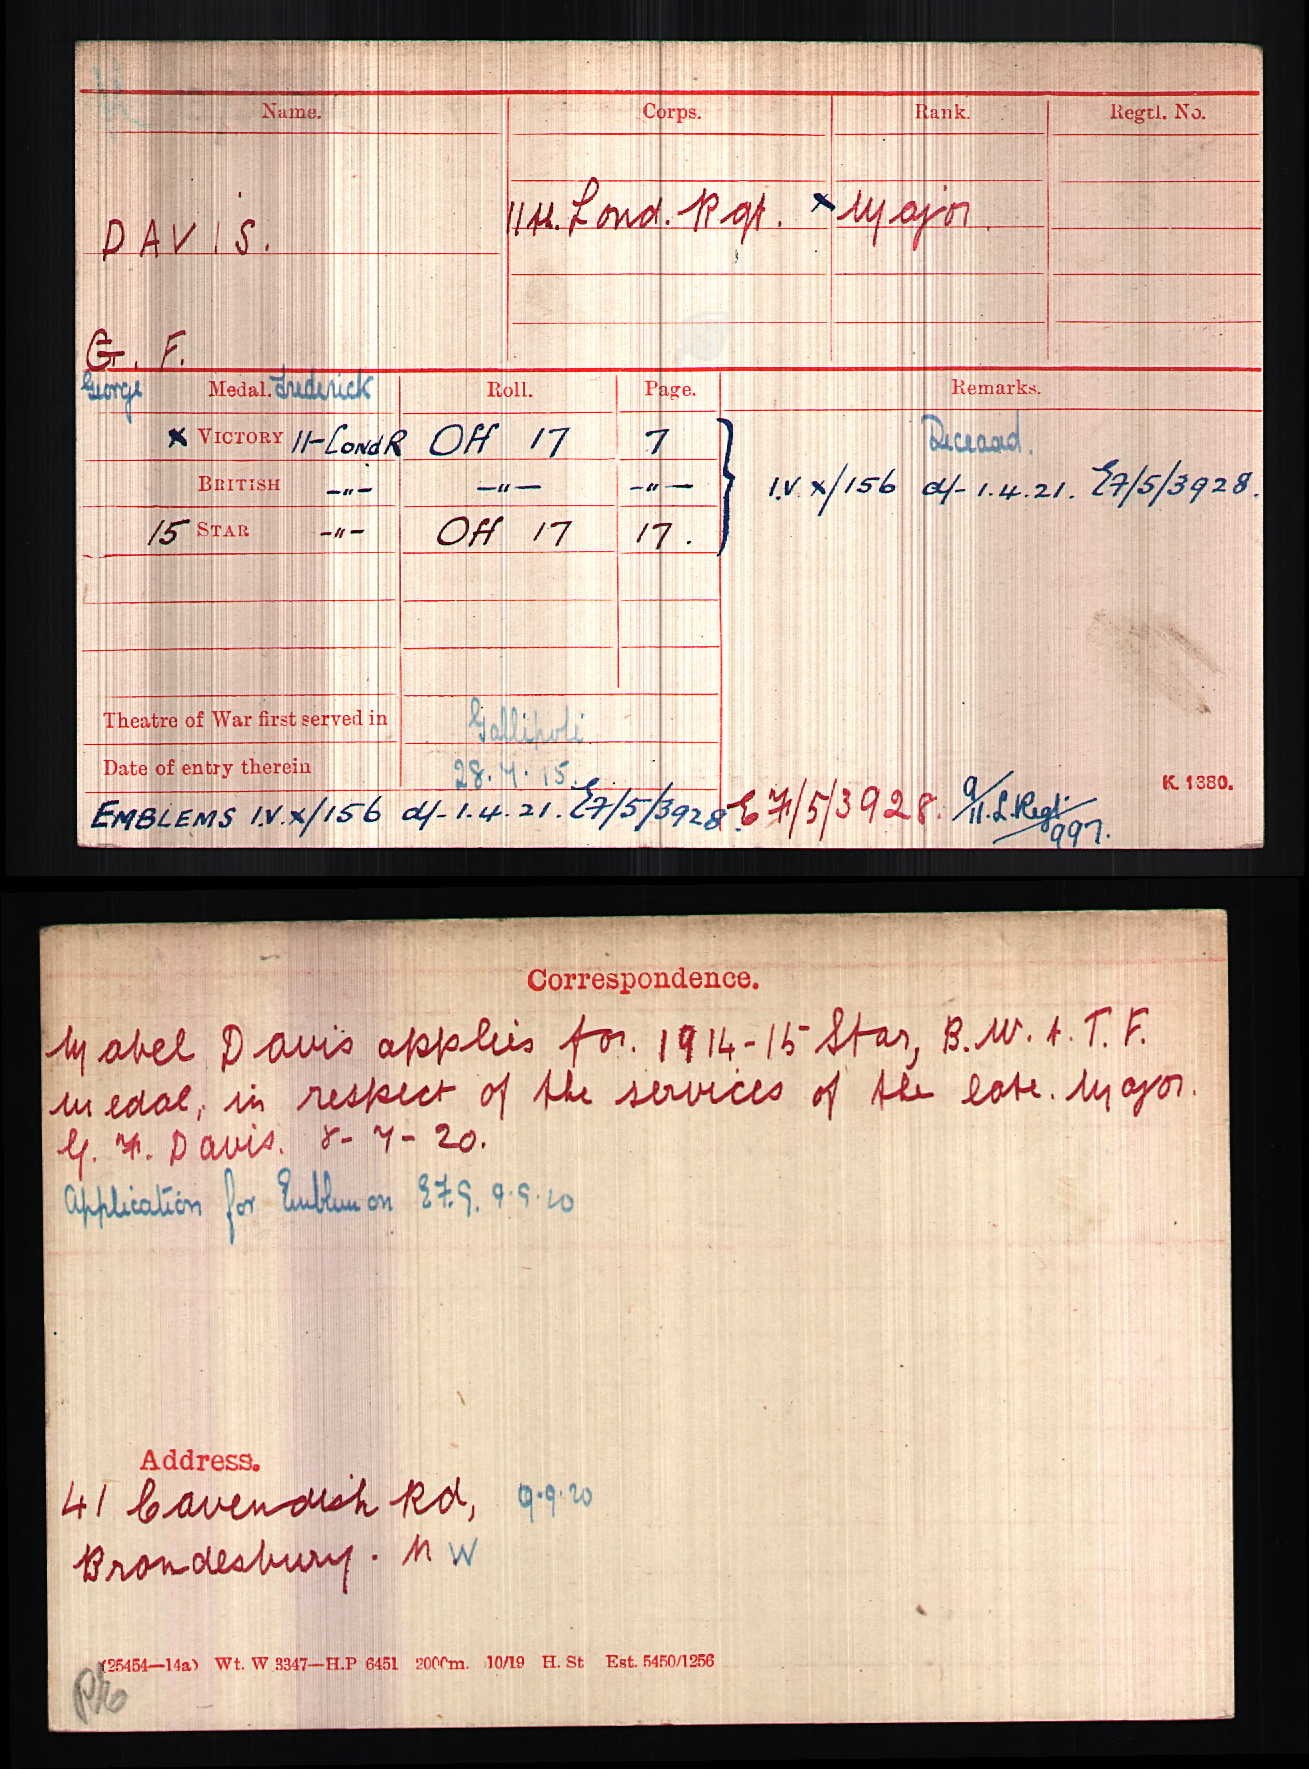 Name. Corps. Rank. Regtl. No.
DAVIS. 11th. Lond. Rgt. x Major.
G. F.
George Frederick
Medal. Roll. Page. Remarks.
x VICTORY 11-LONDR Off 17 7 Deceased.
BRITISH -"- -"- -"- I.V. x/156 d/- 1.4.21. E7/5/3928.
15 STAR -"- Off 17 17.
Theatre of War first served in Gallipoli
Date of entry therein 28.7.15.
K. 1380.
EMBLEMS I.V.x/156 d/- 1.4.21. E7/5/3928. E7/5/3928. 9/11.L.Regt. 997.
Correspondence.
Mabel Davis applies for. 1914-15 Star, B.W. & T.F.
medal, in respect of the services of the late. Major.
G. F. Davis. 8-7-20.
Application for Emblem on 9.9.20
Address.
41 Cavendish Rd, 9.9.20
Brondesbury. N W
(25454—14a) Wt. W 3347—H.P 6451 2000m. 10/19 H. St Est. 5450/1256